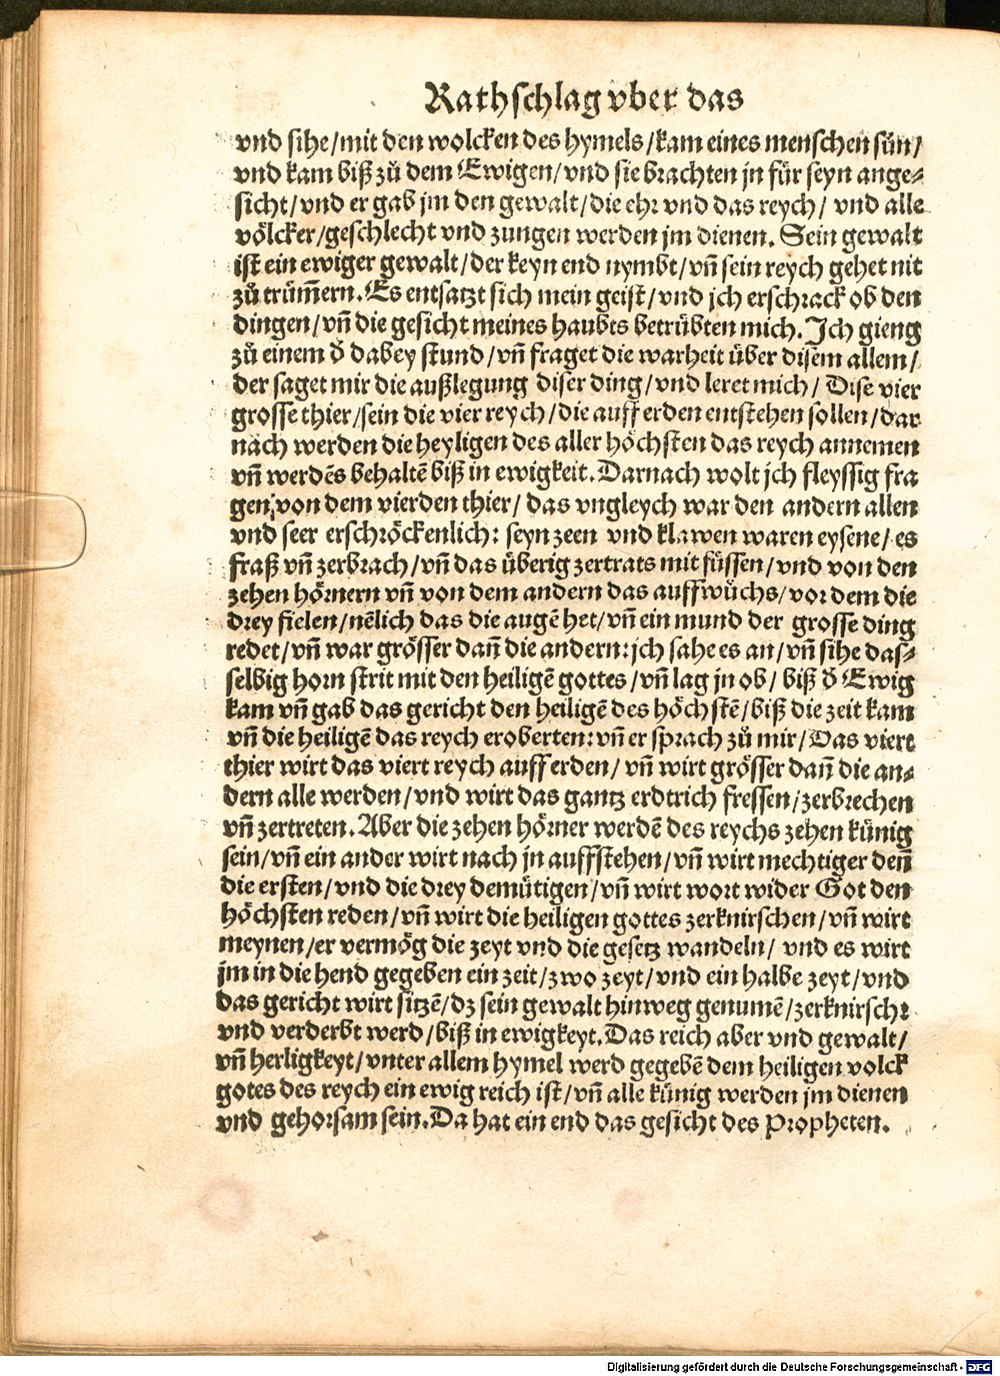 Rathschlag vber das
vnd sihe/mit den wolcken des hymels/kam eines menschen sůn/
vnd kam biß zů dem Ewigen/vnd sie brachten jn für seyn ange-
sicht/vnd er gab jm den gewalt/die ehr vnd das reych/ vnd alle
völcker/geschlecht vnd zungen werden jm dienen. Sein gewalt
ist ein ewiger gewalt/der keyn end nymbt/vñ sein reych gehet nit
zů trüm̃ern. Es entsatzt sich mein geist/vnd jch erschrack ob den
dingen/vñ die gesicht meines haubts betrübten mich. Ich gieng
zů einem d̕ dabey stund/vñ fraget die warheit über disem allem/
der saget mir die außlegung diser ding/vnd leret mich/ Dise vier
grosse thier/sein die vier reych/die auff erden entstehen sollen/dar
nach werden die heyligen des aller höchsten das reych annemen
vñ werdēs behaltē biß in ewigkeit. Darnach wolt jch fleyssig fra
gen/von dem vierden thier/ das vngleych war den andern allen
vnd seer erschröckenlich: seyn zeen vnd klawen waren eysene/ es
fraß vñ zerbrach/vñ das überig zertrats mit füssen/vnd von den
zehen hörnern vñ von dem andern das auffwůchs/vor dem die
drey fielen/nēlich das die augē het/vñ ein mund der grosse ding
redet/vñ war grösser dañ die andern: jch sahe es an/vñ sihe das-
selbig horn strit mit den heiligē gottes/vñ lag jn ob/ biß d̕ Ewig
kam vñ gab das gericht den heiligē des höchstē/biß die zeit kam
vñ die heiligē das reych eroberten: vñ er sprach zů mir/Das viert
thier wirt das viert reych auff erden/ vñ wirt grösser dañ die an-
dern alle werden/vnd wirt das gantz erdtrich fressen/zerbrechen
vñ zertreten. Aber die zehen hörner werdē des reychs zehen künig
sein/vñ ein ander wirt nach jn auffstehen/vñ wirt mechtiger deñ
die ersten/vnd die drey demütigen/vñ wirt wort wider Got den
höchsten reden/vñ wirt die heiligen gottes zerknirschen/vñ wirt
meynen/er vermög die zeyt vnd die gesetz wandeln/ vnd es wirt
jm in die hend gegeben ein zeit/zwo zeyt/vnd ein halbe zeyt/vnd
das gericht wirt sitzē/dz sein gewalt hinweg genumē/zerknirscht
vnd verderbt werd/biß in ewigkeyt. Das reich aber vnd gewalt/
vñ herligkeyt/vnter allem hymel werd gegebē dem heiligen volck
gotes des reych ein ewig reich ist/vñ alle künig werden jm dienen
vnd gehorsam sein. Da hat ein end das gesicht des Propheten.
Digitalisierung gefördert durch die Deutsche Forschungsgemeinschaft - DFG